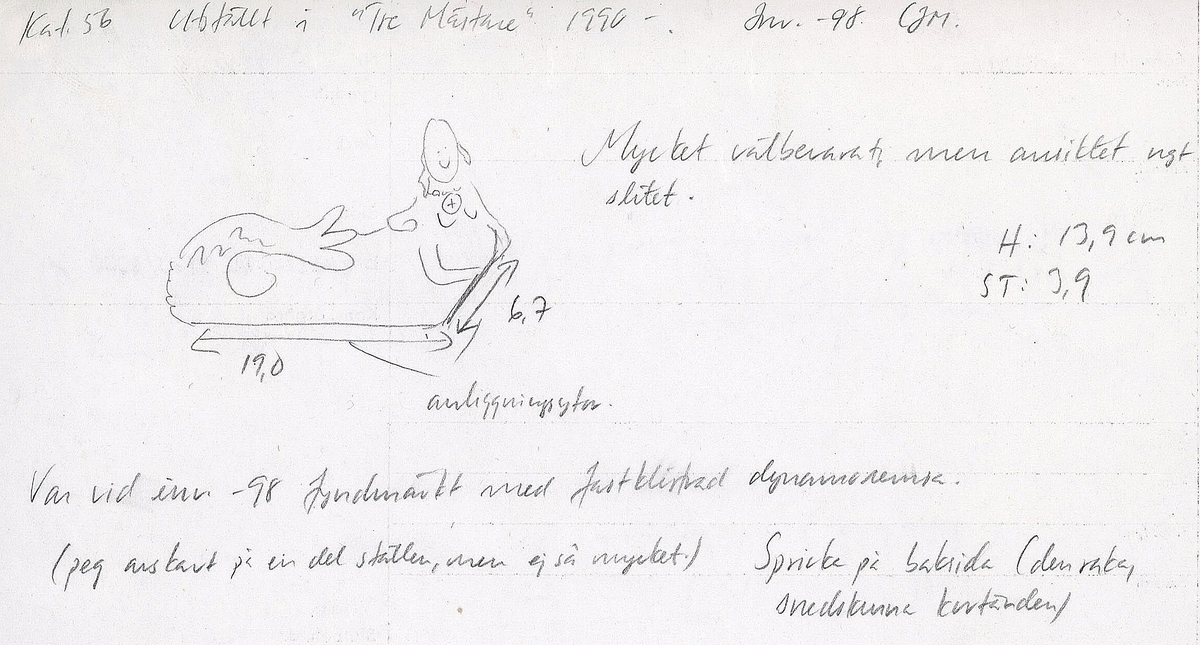 Kat. 56 Utställt i "Tre Mästare" 1990 -. Inv. -98. CJM.
Mycket välbevarat, men ansiktet ngt
slitet.
H: 13,9 cm
ST: 3,9
6,7
19,0
anliggningsytor.
Var vid inv. -98 fyndmärkt med fastklistrad dymoremsa.
(peg avskavt på en del ställen, men ej så mycket.) Spricka på baksida (den raka,
snedskurna kortänden)